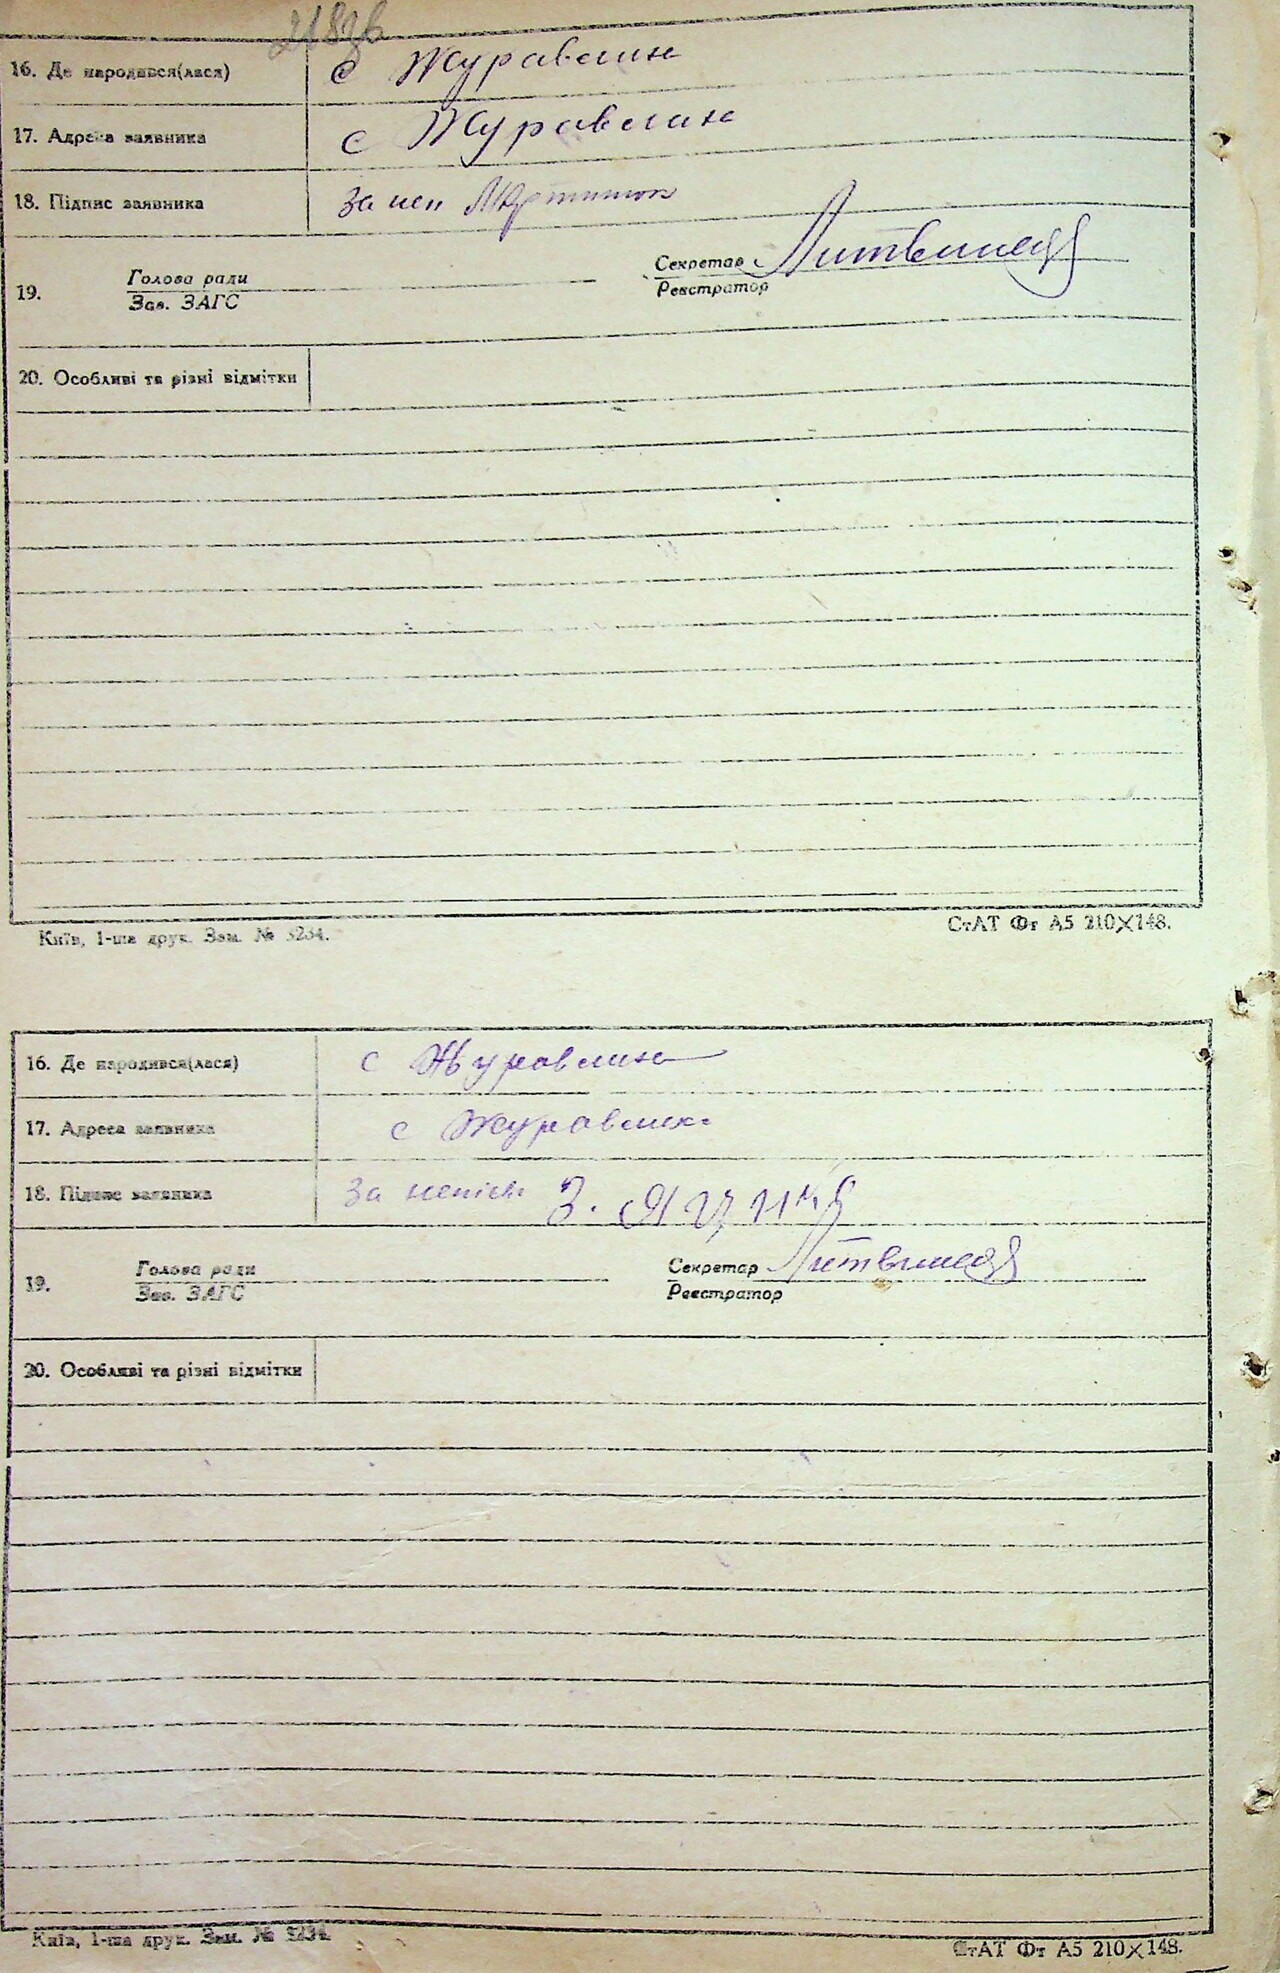 218зв
16. Де народився(лася) с Журавлинк
17. Адреса заявника с Журавлинк
18. Підпис заявника За неп Мартинюк
19. Голова ради Секретар Литвинец
Зав. ЗАГС Реєстратор
20. Особливі та різні відмітки
Київ, 1-ша друк. Зам. № 5234.
СтАТ Фт А5 210×148.
16. Де народився(лася) с Журавлинк
17. Адреса заявника с Журавлинк
18. Підпис заявника За непісм З. Яцин
19. Голова ради Секретар Литвинец
Зав. ЗАГС Реєстратор
20. Особливі та різні відмітки
Київ, 1-ша друк. Зам. № 5234.
СтАТ Фт А5 210×148.